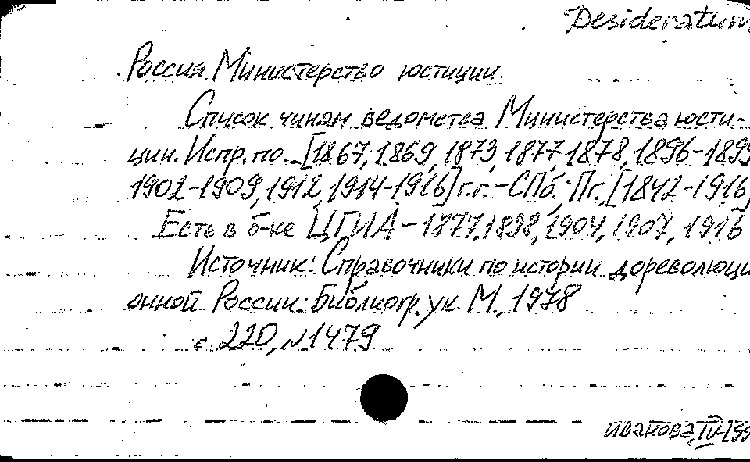 Desideratum
Россия. Министерство юстиции.
Список чинам ведомства Министерства юсти-
ции. Испр. по... [1867, 1869, 1873, 1877-1878, 1896-1899
1902-1909, 1912, 1914-1916] г.г. - СПб; Пг, [1842-1916]
Есть в б-ке ЦГИА - 1877, 1898, 1904, 1907, 1916
Источник: Справочники по истории дореволюци
онной России: Библиогр. ук. М., 1978
с. 220, №1479
Иванова, IV-199